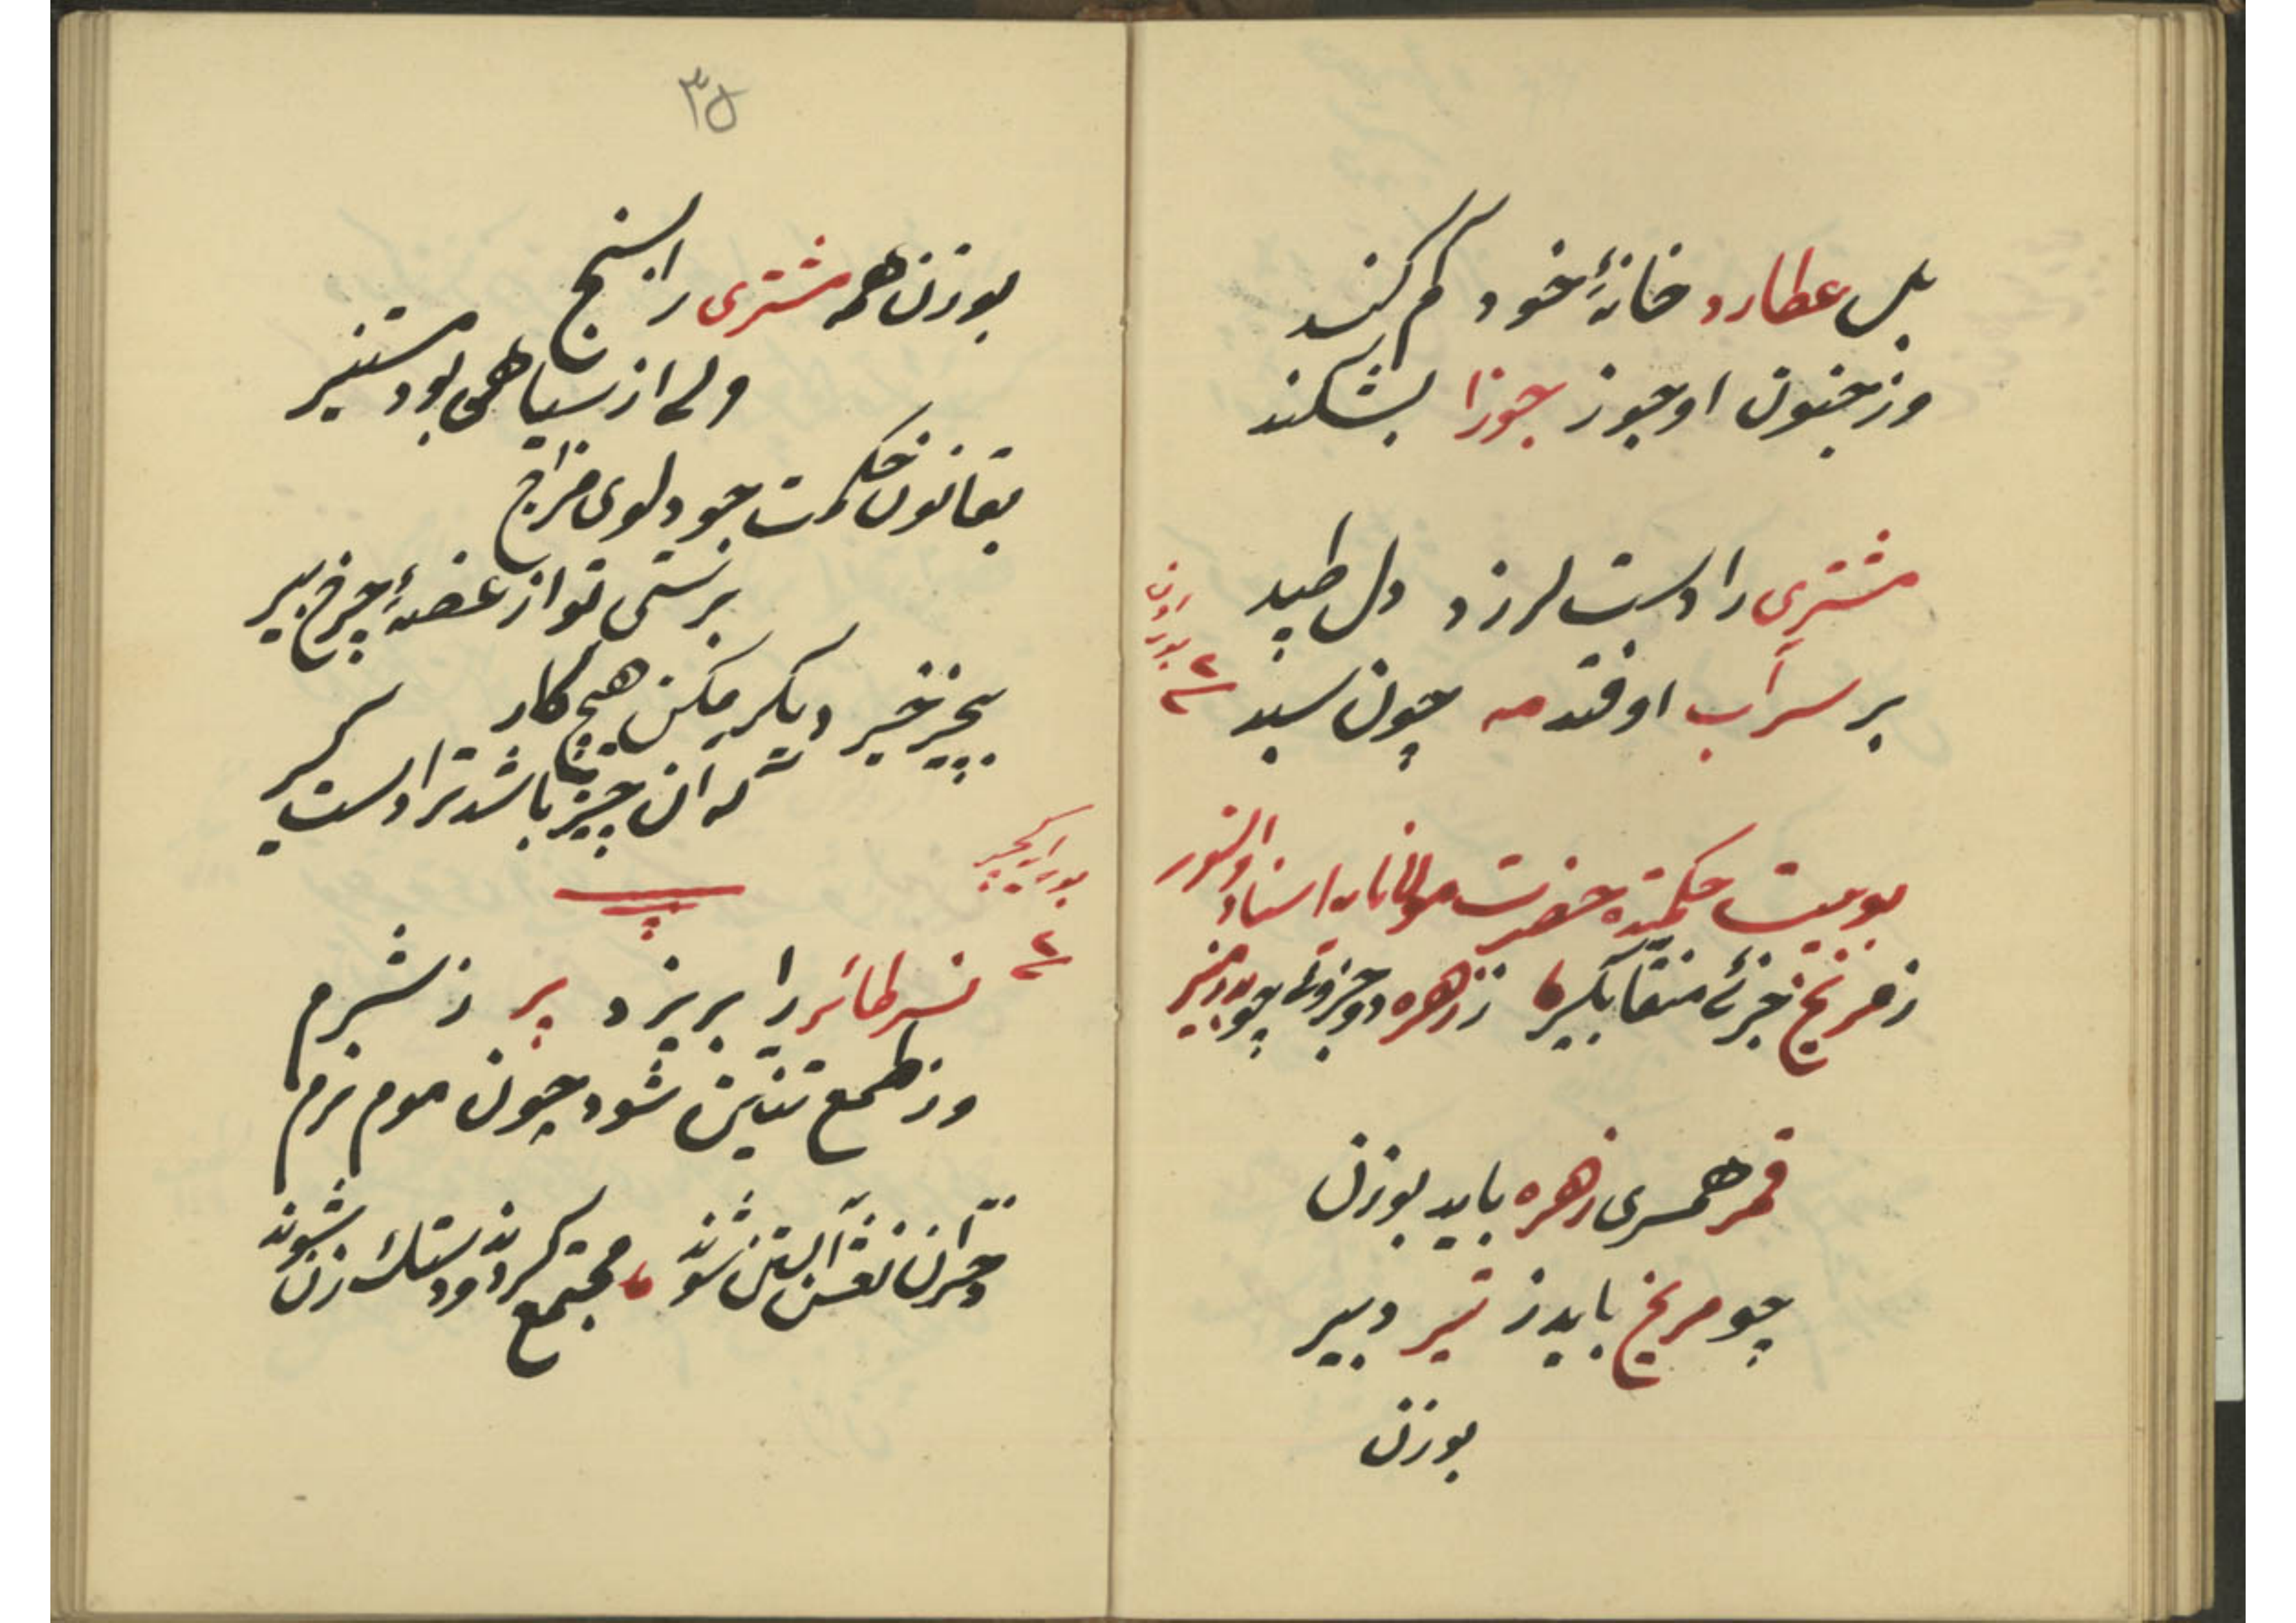 بل عطارد خانهٔ خود کم کند
وز جنون او جوز جوزا بشکند
مشتری را دست لرزد دل طپید
بر سر آب اوفتد مه چون سبد
بو بیت حکمتده حضرت مولانایه اسناد اولنور
ز مریخ جزئی منقا بگیر ز زهره دو جزوی چو بدر منیر
قمر همسری زهره باید بوزن
چو مریخ باید ز تیر دبیر
بوزن
٣٥
بوزن همه مشتری را بسنج
ولی از سیاهی بود مستنیر
بقانون حکمت چو دلوی مزاج
برستی تو از غصهٔ چرخ پیر
بجز خیر دیگر مکن هیچ کار
که آن چیز باشد ترا دستگیر
نسر طائر را بریزد پر ز شرم
وز طمع تنین شود چون موم نرم
دختران نعش آبستن شوند
مجتمع گردند و دستک زن شوند